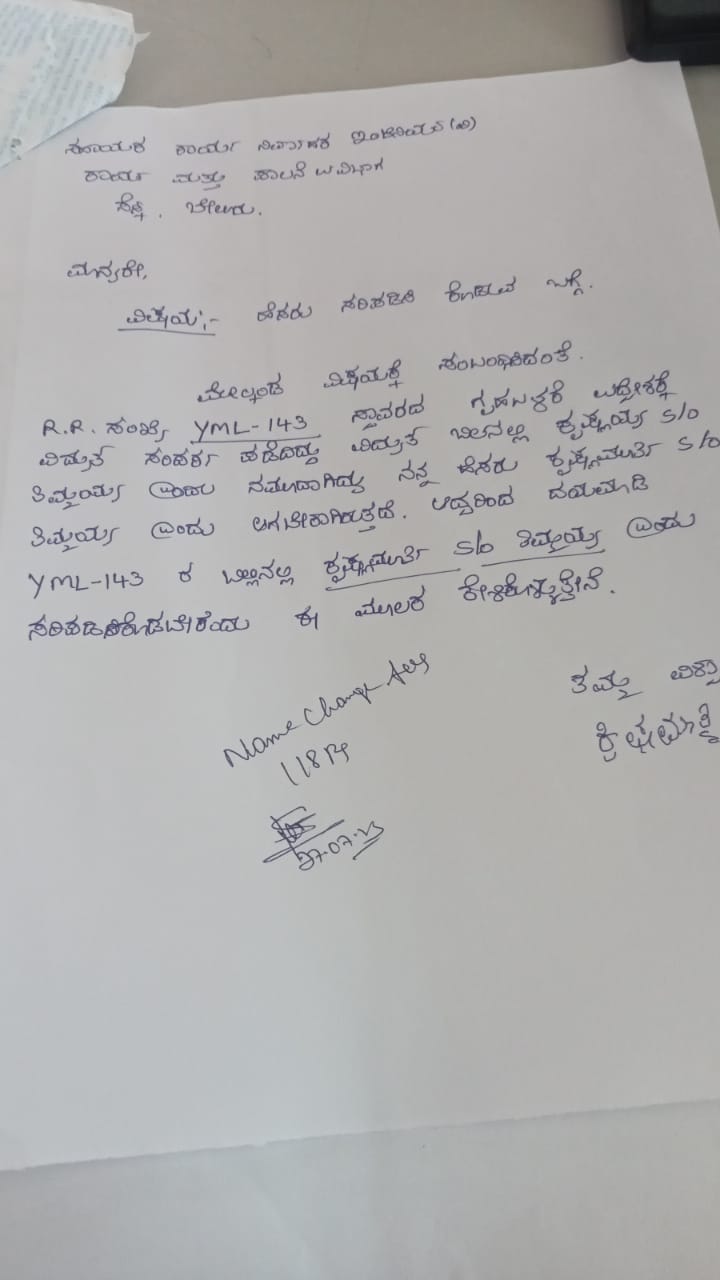 ಸಹಾಯಕ ಕಾರ್ಯ ನಿರ್ವಾಹಕ ಇಂಜಿನಿಯರ್(ವಿ)
ಕಾರ್ಯ ಮತ್ತು ಪಾಲನೆ ಉಪವಿಭಾಗ
ಬೇಲೂರು.
ಮಾನ್ಯರೇ,
ವಿಷಯ:- ಹೆಸರು ಸರಿಪಡಿಸಿ ಕೊಡುವ ಬಗ್ಗೆ.
ಮೇಲ್ಕಂಡ ವಿಷಯಕ್ಕೆ ಸಂಬಂಧಿಸಿದಂತೆ.
R.R. ಸಂಖ್ಯೆ YML-143 ಸ್ಥಾವರದ ಗೃಹಬಳಕೆ ಉದ್ದೇಶಕ್ಕೆ
ವಿದ್ಯುತ್ ಸಂಪರ್ಕ ಪಡೆದಿದ್ದು ವಿದ್ಯುತ್ ಬಿಲನಲ್ಲಿ ಕೃಷ್ಣಯ್ಯ S/o
ತಿಮ್ಮಯ್ಯ ಎಂದು ನಮೂದಾಗಿದ್ದು ನನ್ನ ಹೆಸರು ಕೃಷ್ಣಮೂರ್ತಿ S/o
ತಿಮ್ಮಯ್ಯ ಎಂದು ಆಗಬೇಕಾಗಿರುತ್ತದೆ. ಆದ್ದರಿಂದ ದಯಮಾಡಿ
YML-143 ರ ಬಿಲ್ಲಿನಲ್ಲಿ ಕೃಷ್ಣಮೂರ್ತಿ S/o ತಿಮ್ಮಯ್ಯ ಎಂದು
ಸರಿಪಡಿಸಿಕೊಡಬೇಕೆಂದು ಈ ಮೂಲಕ ಕೇಳಿಕೊಳ್ಳುತ್ತೇನೆ.
ತಮ್ಮ ವಿಶ್ವಾ
Name Change
27.07.23